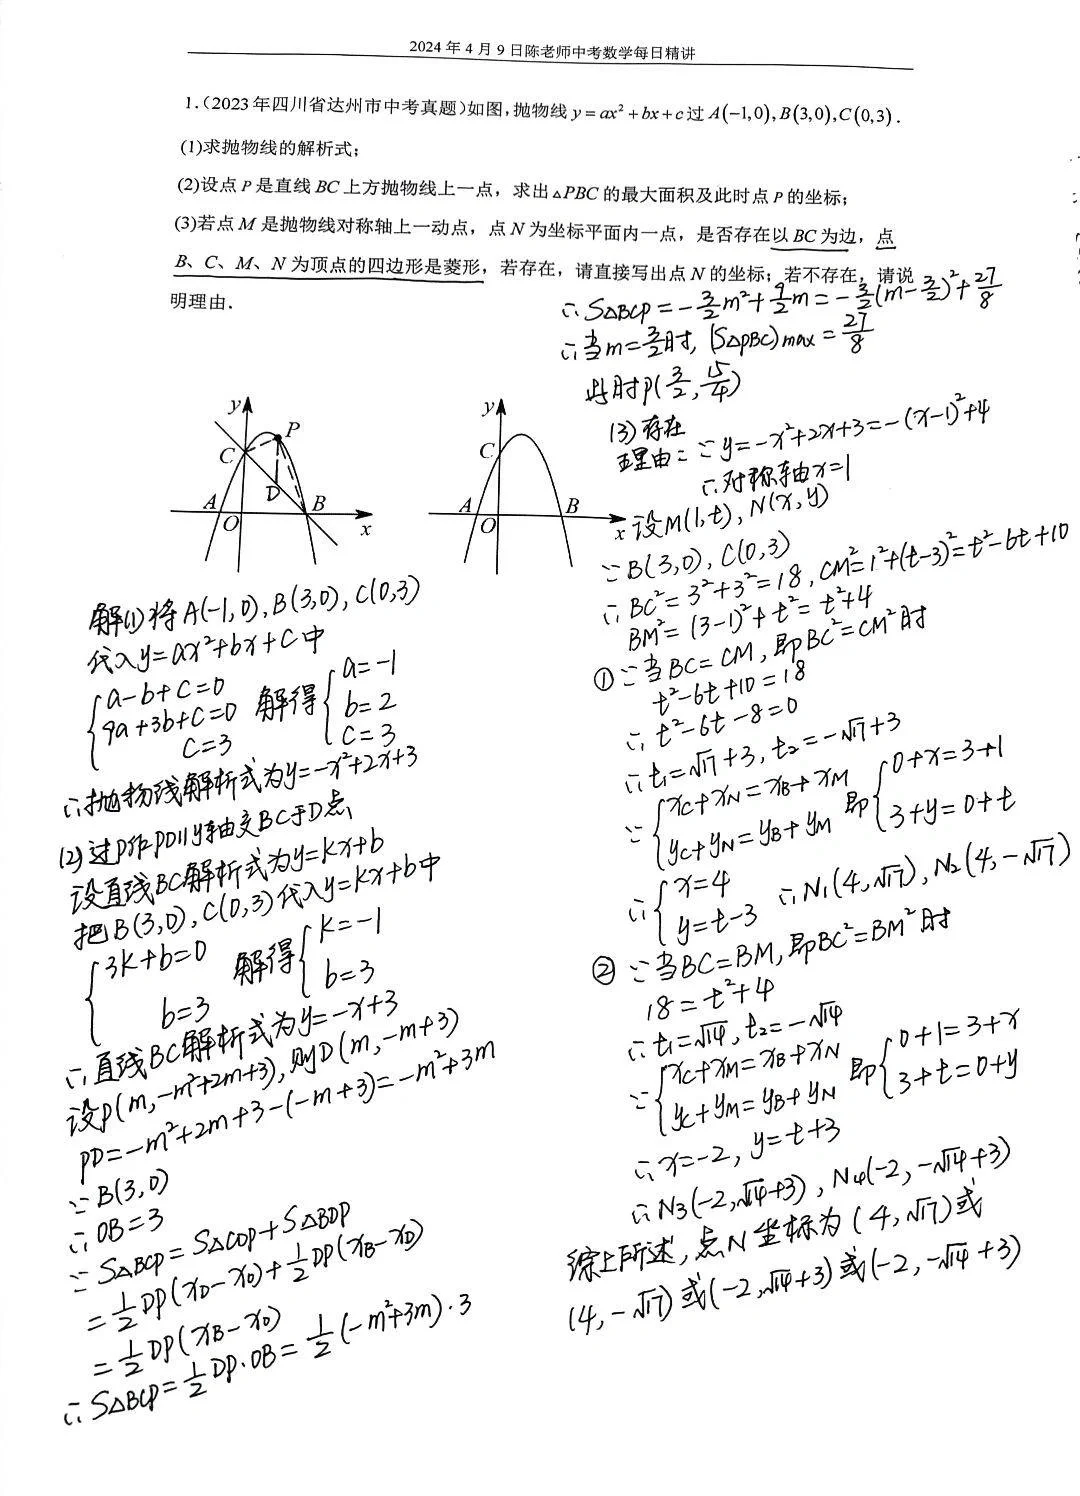 2024年4月9日陈老师中考数学每日精讲
1.(2023年四川省达州市中考真题)如图,抛物线 y=ax²+bx+c过 A(-1,0),B(3,0),C(0,3).
(1)求抛物线的解析式;
(2)设点P是直线BC上方抛物线上一点，求出△PBC的最大面积及此时点P的坐标;
(3)若点M是抛物线对称轴上一动点，点N为坐标平面内一点，是否存在以BC为边，点
B、C、M、N为顶点的四边形是菱形，若存在，请直接写出点N的坐标；若不存在，请说
明理由.
y
P
C
D
A
O
B
x
y
C
A
O
B
x
解(1)将A(-1,0),B(3,0),C(0,3)
代入y=ax²+bx+c中
{a-b+c=0
9a+3b+c=0
c=3
解得{a=-1
b=2
c=3
∴抛物线解析式为y=-x²+2x+3
(2)过P作PD∥y轴交BC于D点
设直线BC解析式为y=kx+b
把B(3,0),C(0,3)代入y=kx+b中
{3k+b=0
b=3
解得{k=-1
b=3
∴直线BC解析式为y=-x+3
设P(m,-m²+2m+3),则D(m,-m+3)
PD=-m²+2m+3-(-m+3)=-m²+3m
∵B(3,0)
∴OB=3
∵S△BCP=S△CDP+S△BDP
=1/2DP(xD-xO)+1/2DP(xB-xD)
=1/2DP(xB-xO)
∴S△BCP=1/2DP·OB=1/2(-m²+3m)·3
∴S△BCP=-3/2m²+9/2m=-3/2(m-3/2)²+27/8
∴当m=3/2时,(S△PBC)max=27/8
此时P(3/2,15/4)
(3)存在
理由:∵y=-x²+2x+3=-(x-1)²+4
∴对称轴x=1
设M(1,t),N(x,y)
∵B(3,0),C(0,3)
∴BC²=3²+3²=18,CM²=1²+(t-3)²=t²-6t+10
BM²=(3-1)²+t²=t²+4
①∵当BC=CM,即BC²=CM²时
t²-6t+10=18
∴t²-6t-8=0
∴t₁=√17+3,t₂=-√17+3
∵{xC+xN=xB+xM
yC+yN=yB+yM
即{0+x=3+1
3+y=0+t
∴{x=4
y=t-3
∴N₁(4,√17),N₂(4,-√17)
②∵当BC=BM,即BC²=BM²时
18=t²+4
∴t₁=√14,t₂=-√14
∵{xC+xM=xB+xN
yC+yM=yB+yN
即{0+1=3+x
3+t=0+y
∴x=-2,y=t+3
∴N₃(-2,√14+3),N₄(-2,-√14+3)
综上所述,点N坐标为(4,√17)或
(4,-√17)或(-2,√14+3)或(-2,-√14+3)